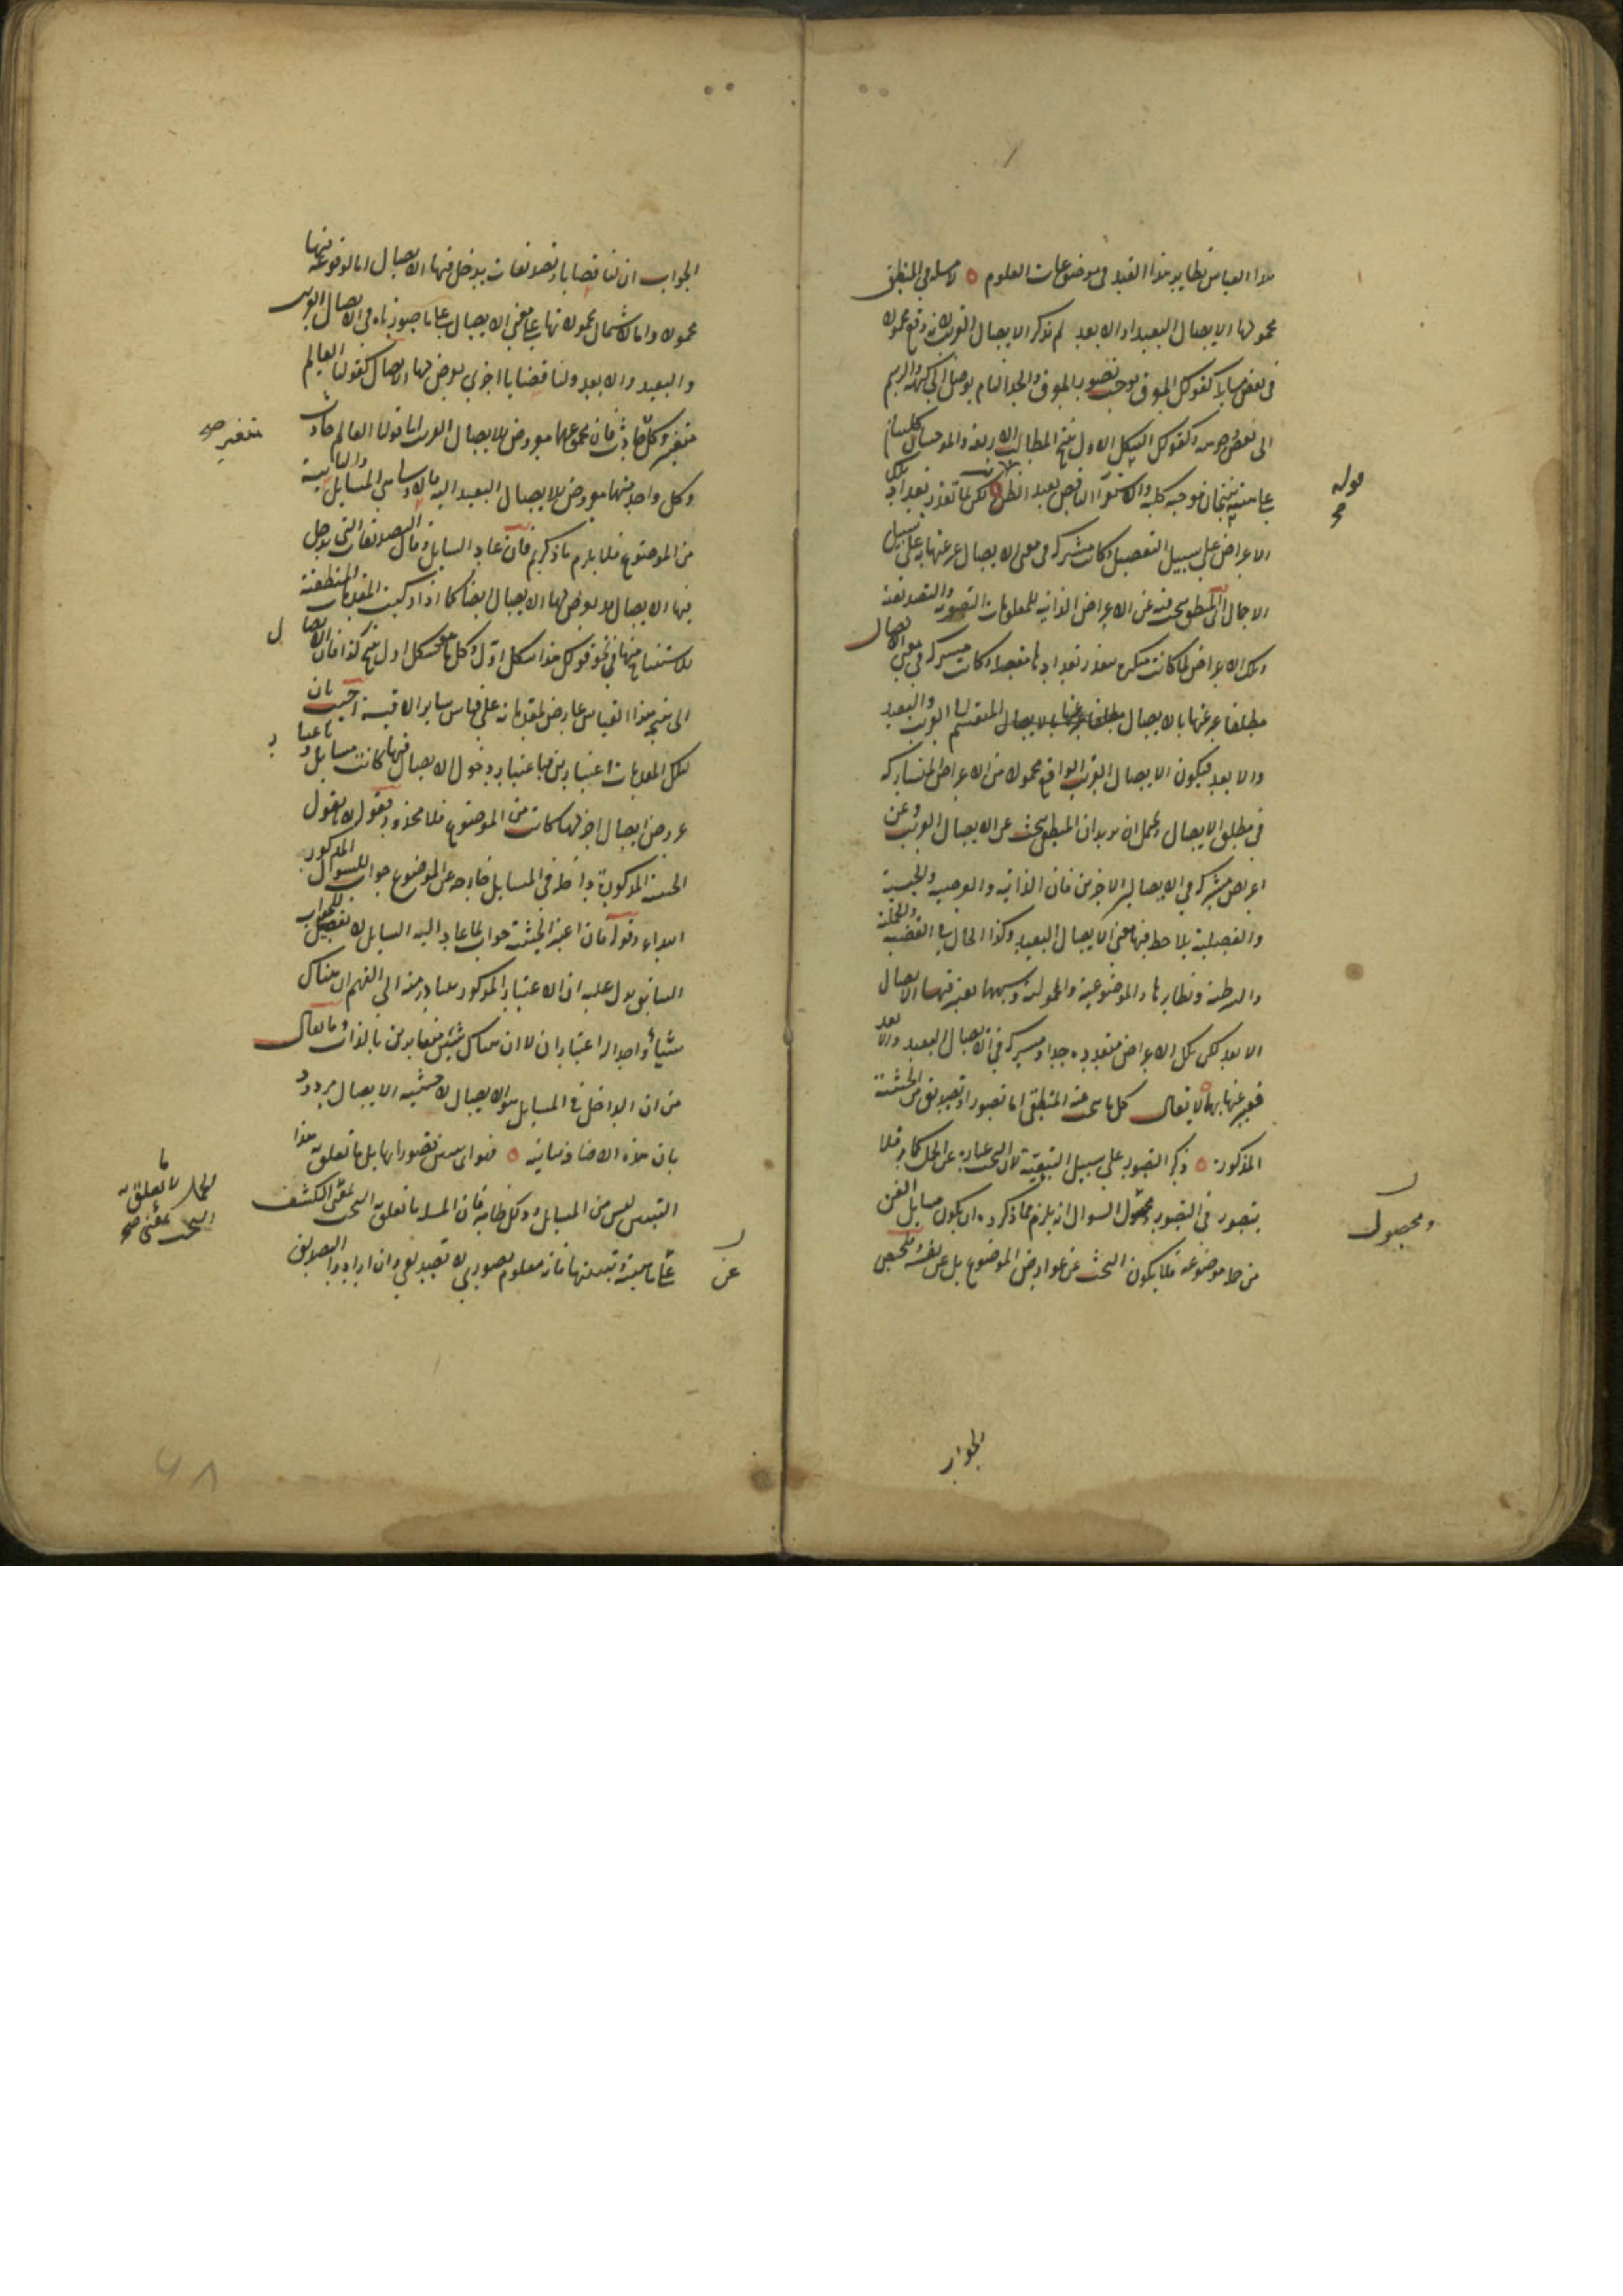 هذا القياس نظاير هذا القيد في موضوعات العلوم ه لا مسئلة في المنطق
محمولها الايصال البعيد او الابعد لم يذكر الايصال القريب لانه وقع محمولا
في بعض مسايله كقولك المعرف يوجب تصور المعرف والحد التام يوصل الى كنهه والرسم
الى بعض وجوهه وكقولك الشكل الاول ينتج المطالب الاربعة والموجبتان كليتان
ينتجان موجبة كلية والاستقراء الناقص يفيد الظن لكن لما تعذر تعداد تلك
قوله
الاعراض على سبيل التفصيل وكانت مشتركة في معنى الايصال عبر عنها به على سبيل
الاجمال المنطق يبحث فيه عن الاعراض الذاتية للمعلومات التصورية والتصديقية
وتلك الاعراض لما كانت متعذر تعدادها مفصلا وكانت مشتركة في معنى الايصال
مطلقا عبر عنها بالايصال المنقسم الى القريب والبعيد
والابعد فيكون الايصال القريب الواقع محمولا من الاعراض المتشاركة
في مطلق الايصال ويحتمل ان يريد ان المنطقي يبحث عن الايصال القريب وعن
اعراض مشتركة في الايصالين الاخيرين فان الذاتية والعرضية والجنسية
والفصلية يلاحظ فيها معنى الايصال البعيد وكذا الحال في القضية والحملية
والشرطية ونظايرها والموضوعية والمحمولية وشبهها يعتبر فيها الايصال
الابعد لكن تلك الاعراض متعددة جدا ومشتركة في الايصال البعيد والابعد
فعبر عنها بهما لا يقال كل ما يبحث عنه المنطقي اما تصور او تصديق من الحيثية
المذكورة ه ذكر التصور على سبيل التبعية لان البحث عبارة عن الحمل كما مر فلا
يتصور في التصور ومحصول السوال انه يلزم مما ذكره ان يكون مسايل الفن
ومحصول
من موضوعه فلا يكون البحث عن عوارض الموضوع بل عن نفسه وملخص
الجواب
الجواب ان لنا قضايا وتصديقات يدخل فيها الايصال اما لوقوعه فيها
محمولا واما لاشتمال محمولاتها على معنى الايصال على ما صورناه في الايصال القريب
والبعيد والابعد ولنا قضايا اخرى يعرض لها الايصال كقولنا العالم
متغير وكل متغير حادث فان مجموعهما معروض للايصال القريب الى قولنا العالم حادث
متغير صح
وكل واحد منهما معروض للايصال البعيد اليه فالاولى من المسايل والثانية
من الموضوع فلا يلزم ما ذكرتم فان عاد السايل وقال التصديقات التي يدخل
فيها الايصال قد يعرض لها الايصال ايضا كما اذا ركبت المقدمات المنطقية
للاستنتاج منها في نحو قولك هذا شكل اول وكل ما هو شكل اول ينتج كذا فان الايصال
الى نتيجة هذا القياس عارض لمقدماته على قياس ساير الاقيسة اجيب بان
لتلك المقدمات اعتبارين فباعتبار دخول الايصال فيها كانت مسايل وباعتبار
عروض ايصال اخر لها كانت من الموضوع فلا محذور فقوله لا نقول
الحيثية المذكورة داخلة في المسايل خارجة عن الموضوع جواب للسوال المذكور
ابتداء وقوله فان اعتبر الحيثية جواب لما عاد اليه السايل لا تفصيل للجواب
السابق يدل عليه ان الاعتبار المذكور يتبادر منه الى الفهم ان هناك
شيئا واحدا له اعتباران لا ان هناك شيئين متغايرين بالذات وما يقال
من ان الداخل في المسايل هو الايصال لا حيثية الايصال مردود
بان هذه الاضافة بيانية ه فهو اي ليس تصورا لها بل ما تعلق به هذا
التبيين ليس من المسايل وذلك ظاهر فان المسئلة ما تعلق به البحث بمعنى الكشف
ما تعلق به
البحث بمعنى صح
عن ماهيته وتبيينها فانه معلوم تصوري لا تصديقي وان اراد به التصديق
عن